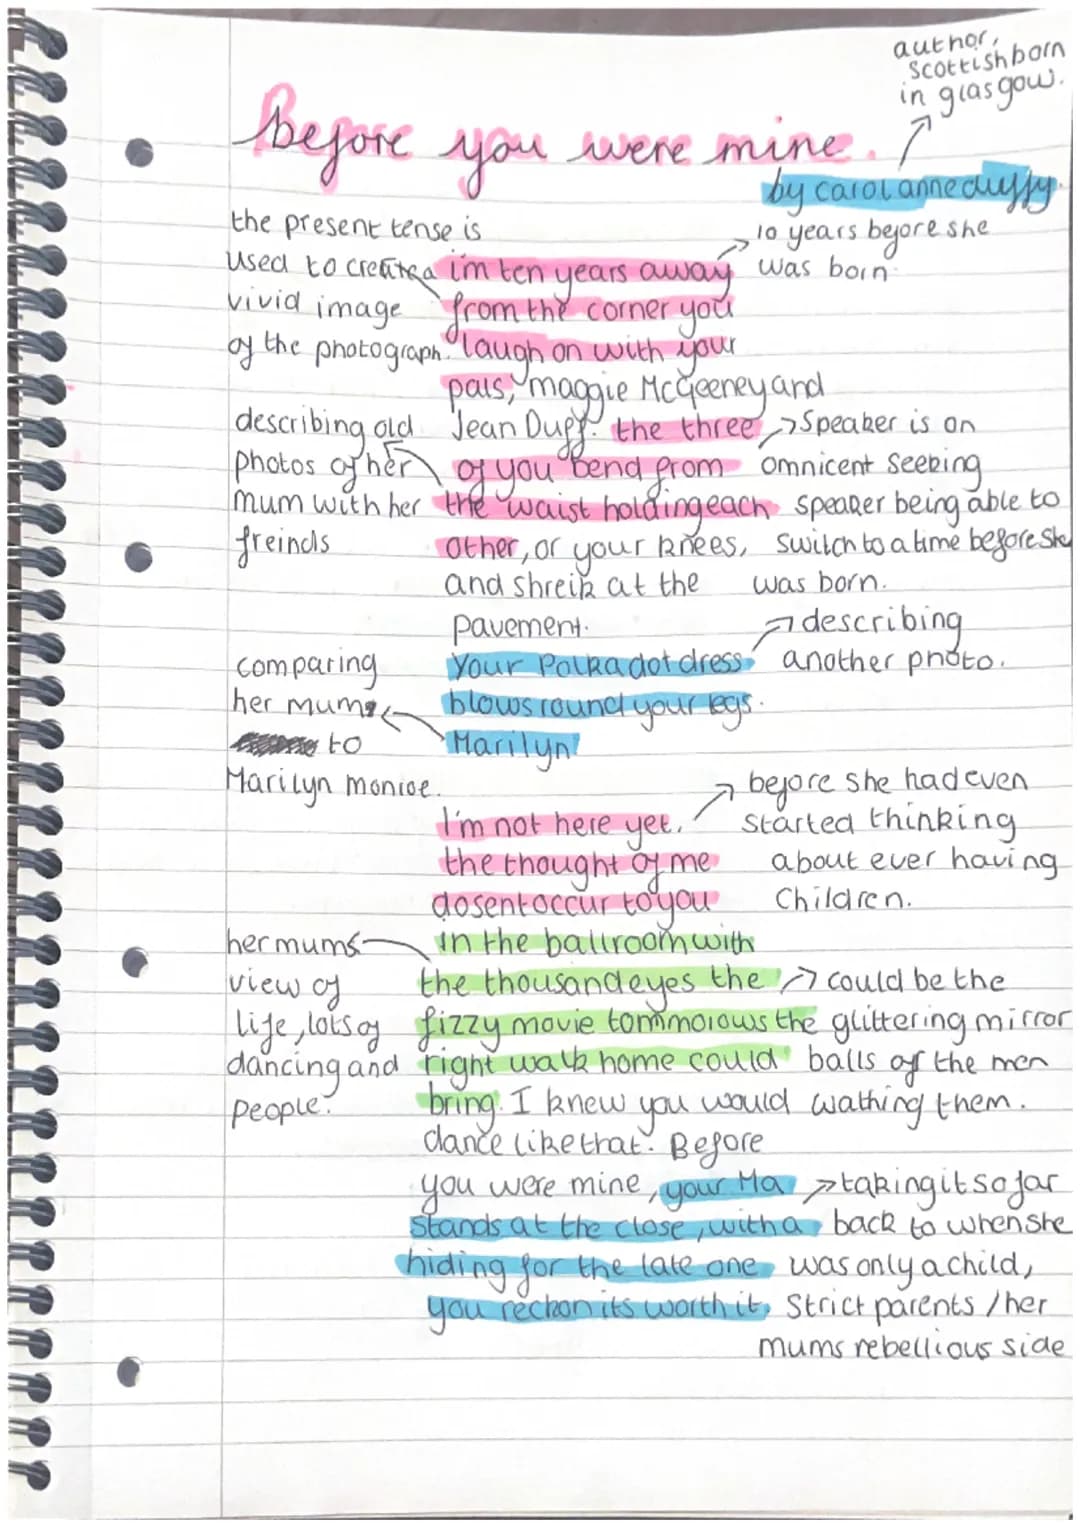 author,
scottish born
in glasgow.
Before you were mine.
by carol anne duffy.
the present tense is
used to create a
vivid image
of the photograph.
i'm ten years away
from the corner you
laugh on with your
pals, maggie McGeeney and
Jean Duff. the three
of you bend from
the waist holding each
other, or your knees,
and shreik at the
pavement.
10 years before she
was born
describing old
photos of her
mum with her
freinds
Speaker is on
omnicent seeking
speaker being able to
switch to a time before she
was born.
your Polka dot dress
blows round your legs.
Marilyn!
describing
another photo.
comparing
her mums
to
Marilyn monroe.
I'm not here yet.
the thought of me
dosent occur to you
before she had even
started thinking
about ever having
Children.
in the ballroom with
the thousand eyes the
fizzy movie tommorows the
right walk home could
bring. I knew you would
dance like that. Before
you were mine, your Ma
stands at the close, with a
hiding for the late one
you reckon its worth it.
her mums
view of
life, lots of
dancing and
people.
could be the
glittering mirror
balls of the men
wathing them.
taking it so far
back to when she
was only a child,
Strict parents / her
mums rebellious side